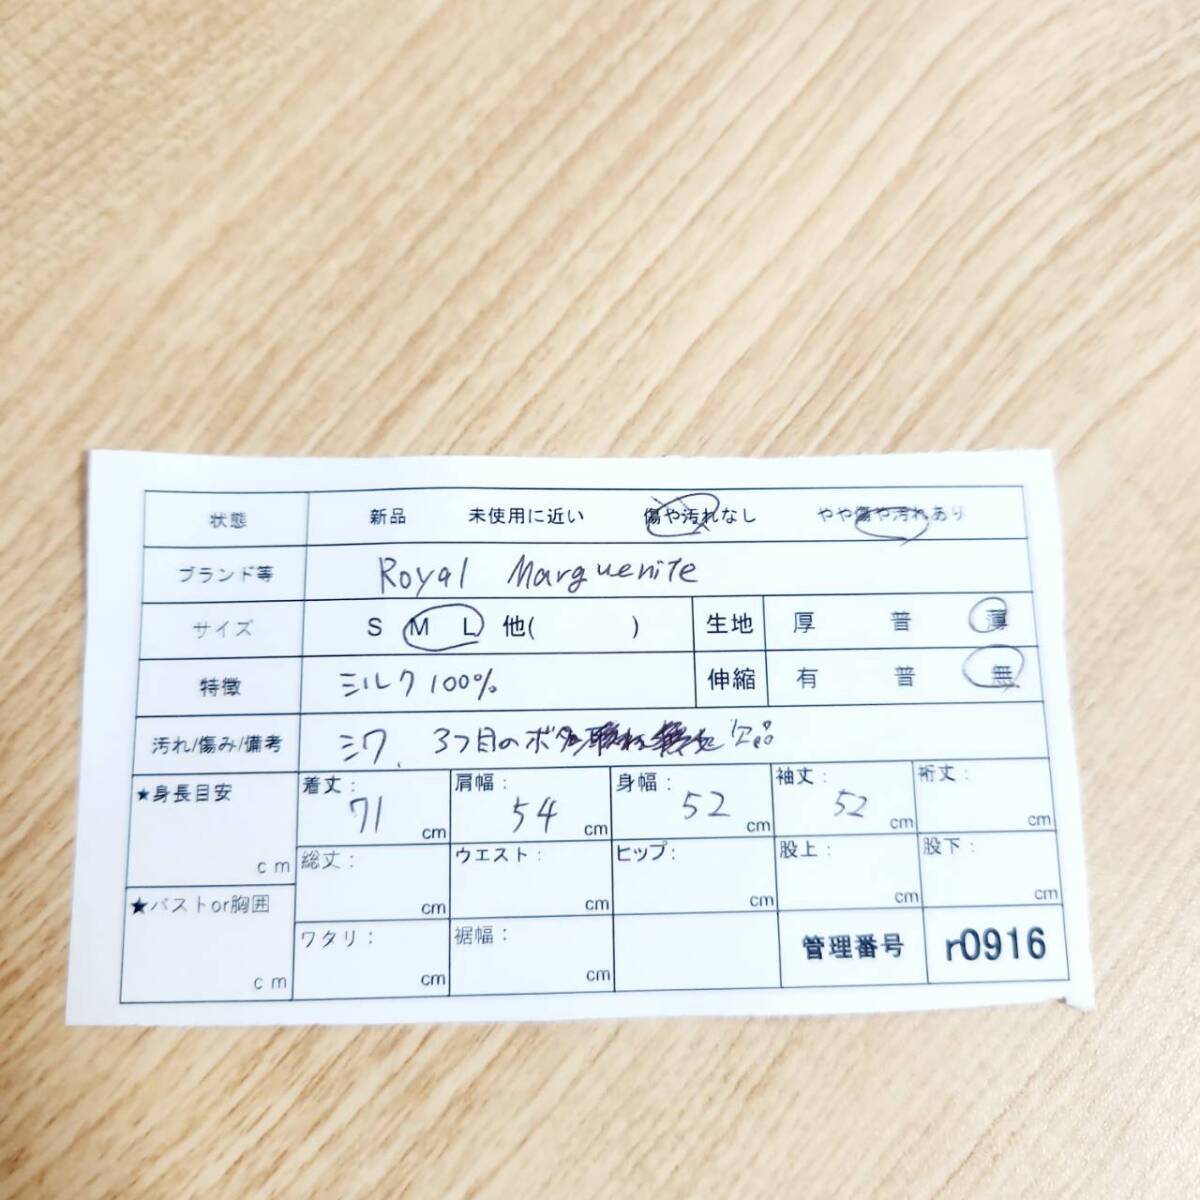 状態 新品 未使用に近い 傷や汚れなし やや傷や汚れあり
ブランド等 Royal Marguenite
サイズ S M L 他( ) 生地 厚 普 薄
特徴 シルク100% 伸縮 有 普 無
汚れ/傷み/備考 シワ、3つ目のボタン 欠品
★身長目安 cm 着丈: 71 cm 肩幅: 54 cm 身幅: 52 cm 袖丈: 52 cm 裄丈: cm
総丈: cm ウエスト: cm ヒップ: cm 股上: cm 股下: cm
★バストor胸囲 cm ワタリ: cm 裾幅: cm 管理番号 r0916